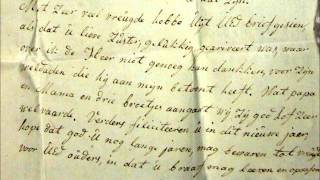 Met zar val vreugde hebbe Uit UEd brief gesien,
als dat u lieve Zuster, gelukkig gearriveert was, waar
over ik de Heer niet genoeg kan dankken, voor Zijn
weldaden die hij aan mijn betont heeft. Wat papa
en Mama en drie broetjes aangaat wij Zij god lof zeer
welvaarde. Verders feliciteere u in dit nieuwe jaer,
hope dat god U nog lange jaren, mag bewaren tot
voor UEd ouders, in dat u braaf mag Leeren en